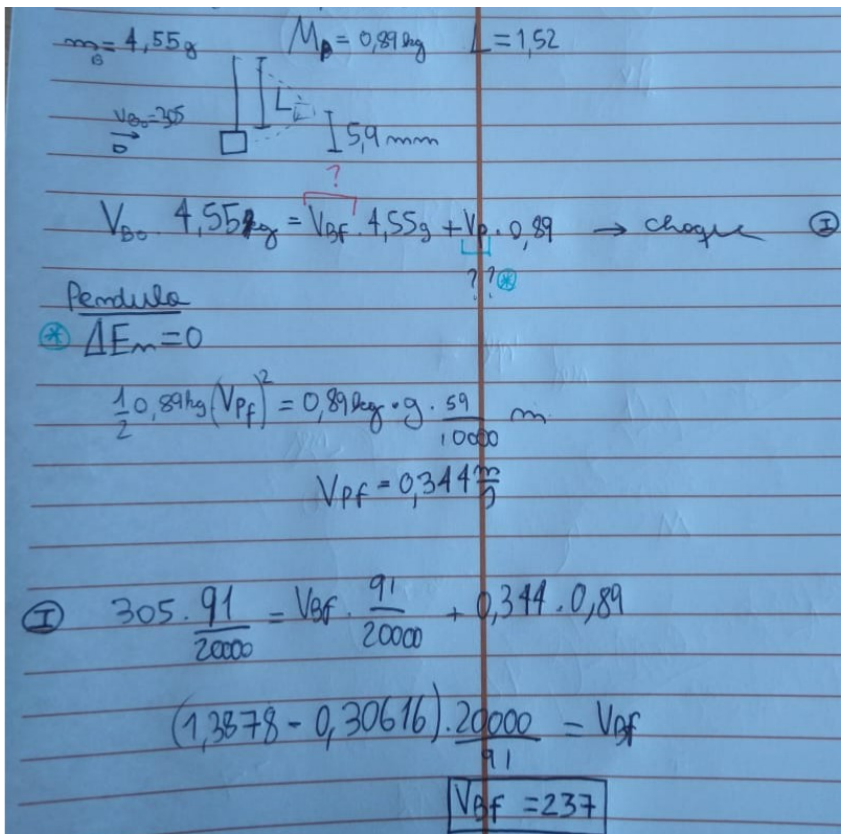 m_B = 4,55g M_p = 0,89kg L = 1,52
V_B0 = 305
L
5,9 mm
?
V_B0 . 4,55kg = V_Bf . 4,55g + V_p . 0,89 → choque Ⓘ
? ? ⊛
Pendulo
⊛ ΔE_m = 0
1/2 0,89kg (V_Pf)² = 0,89kg . g . 59/10000 m
V_Pf = 0,344 m/s
Ⓘ 305 . 91/20000 = V_Bf . 91/20000 + 0,344 . 0,89
(1,3878 - 0,30616) . 20000/91 = V_Bf
V_Bf = 237